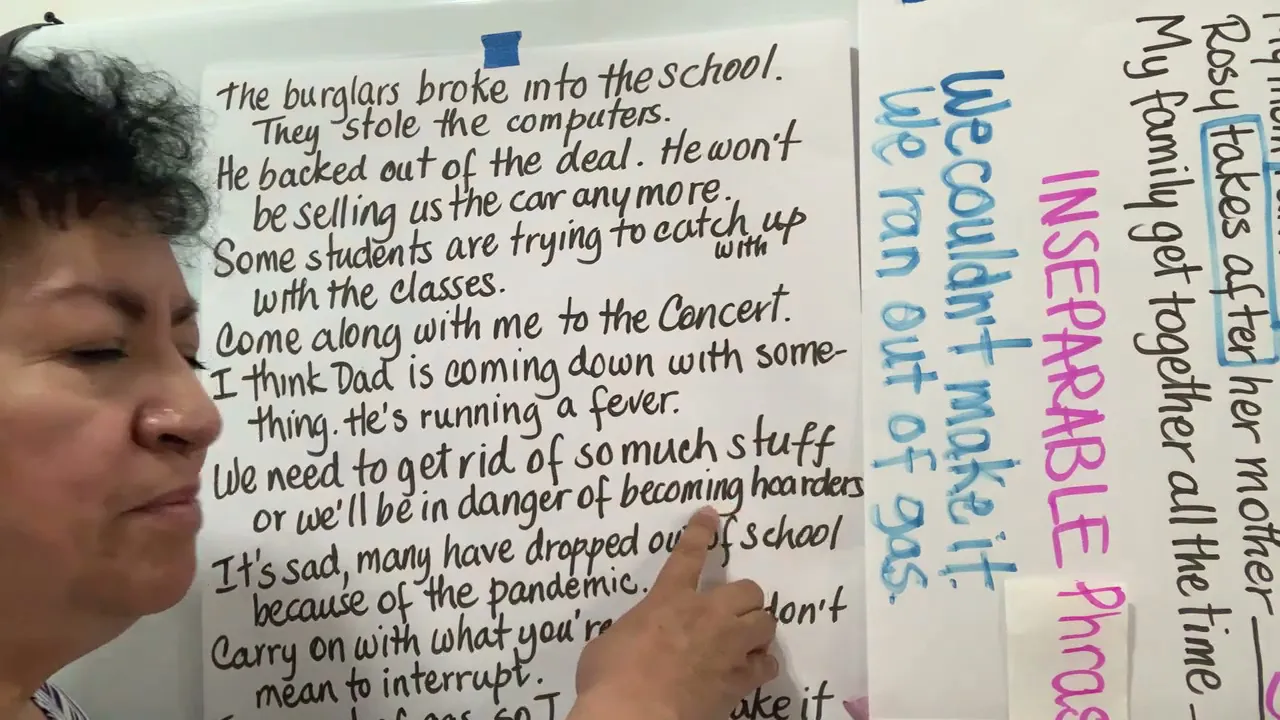 The burglars broke into the school.
They stole the computers.
He backed out of the deal. He won't
be selling us the car anymore.
Some students are trying to catch up
with
with the classes.
Come along with me to the Concert.
I think Dad is coming down with some-
thing. He's running a fever.
We need to get rid of so much stuff
or we'll be in danger of becoming hoarders
It's sad, many have dropped out of school
because of the pandemic.
Carry on with what you're don't
mean to interrupt.
gas, so I ake it
We couldn't make it.
We ran out of gas.
INSEPARABLE Phras
Rosy takes after her mother
My family get together all the time